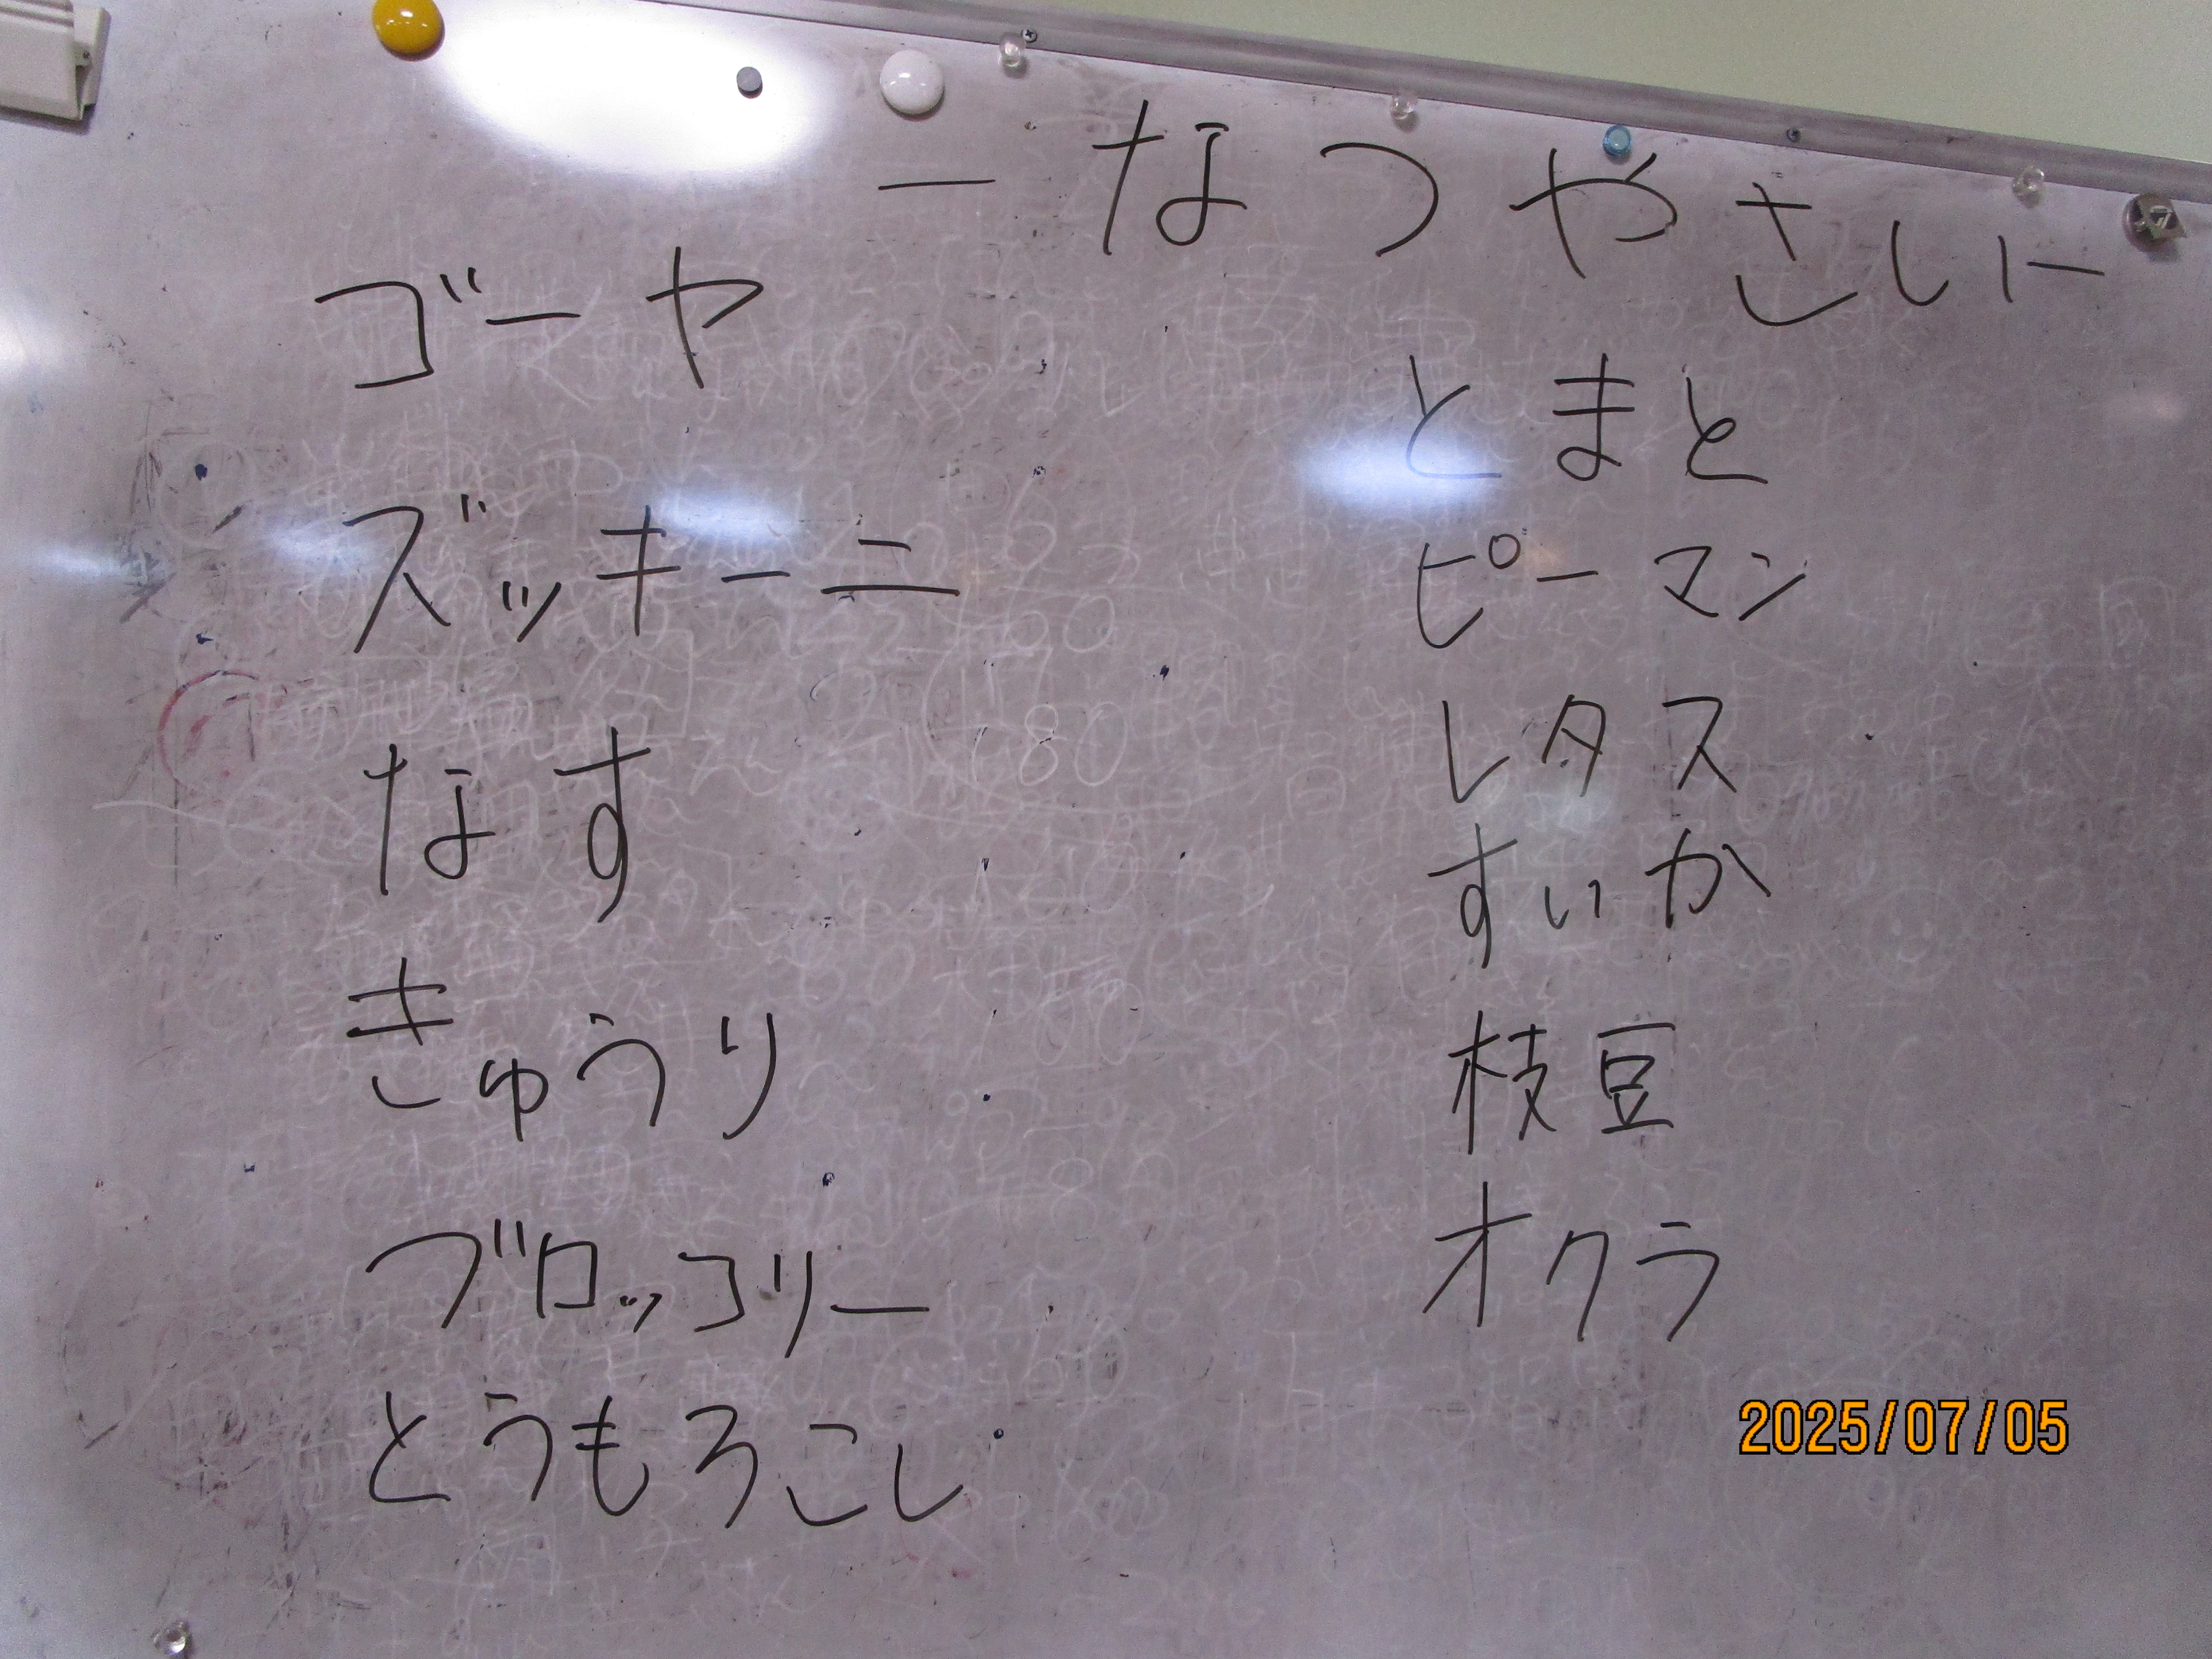 ーなつやさいー
ゴーヤ
ズッキーニ
なす
きゅうり
ブロッコリー
とうもろこし
とまと
ピーマン
レタス
すいか
枝豆
オクラ
2025/07/05